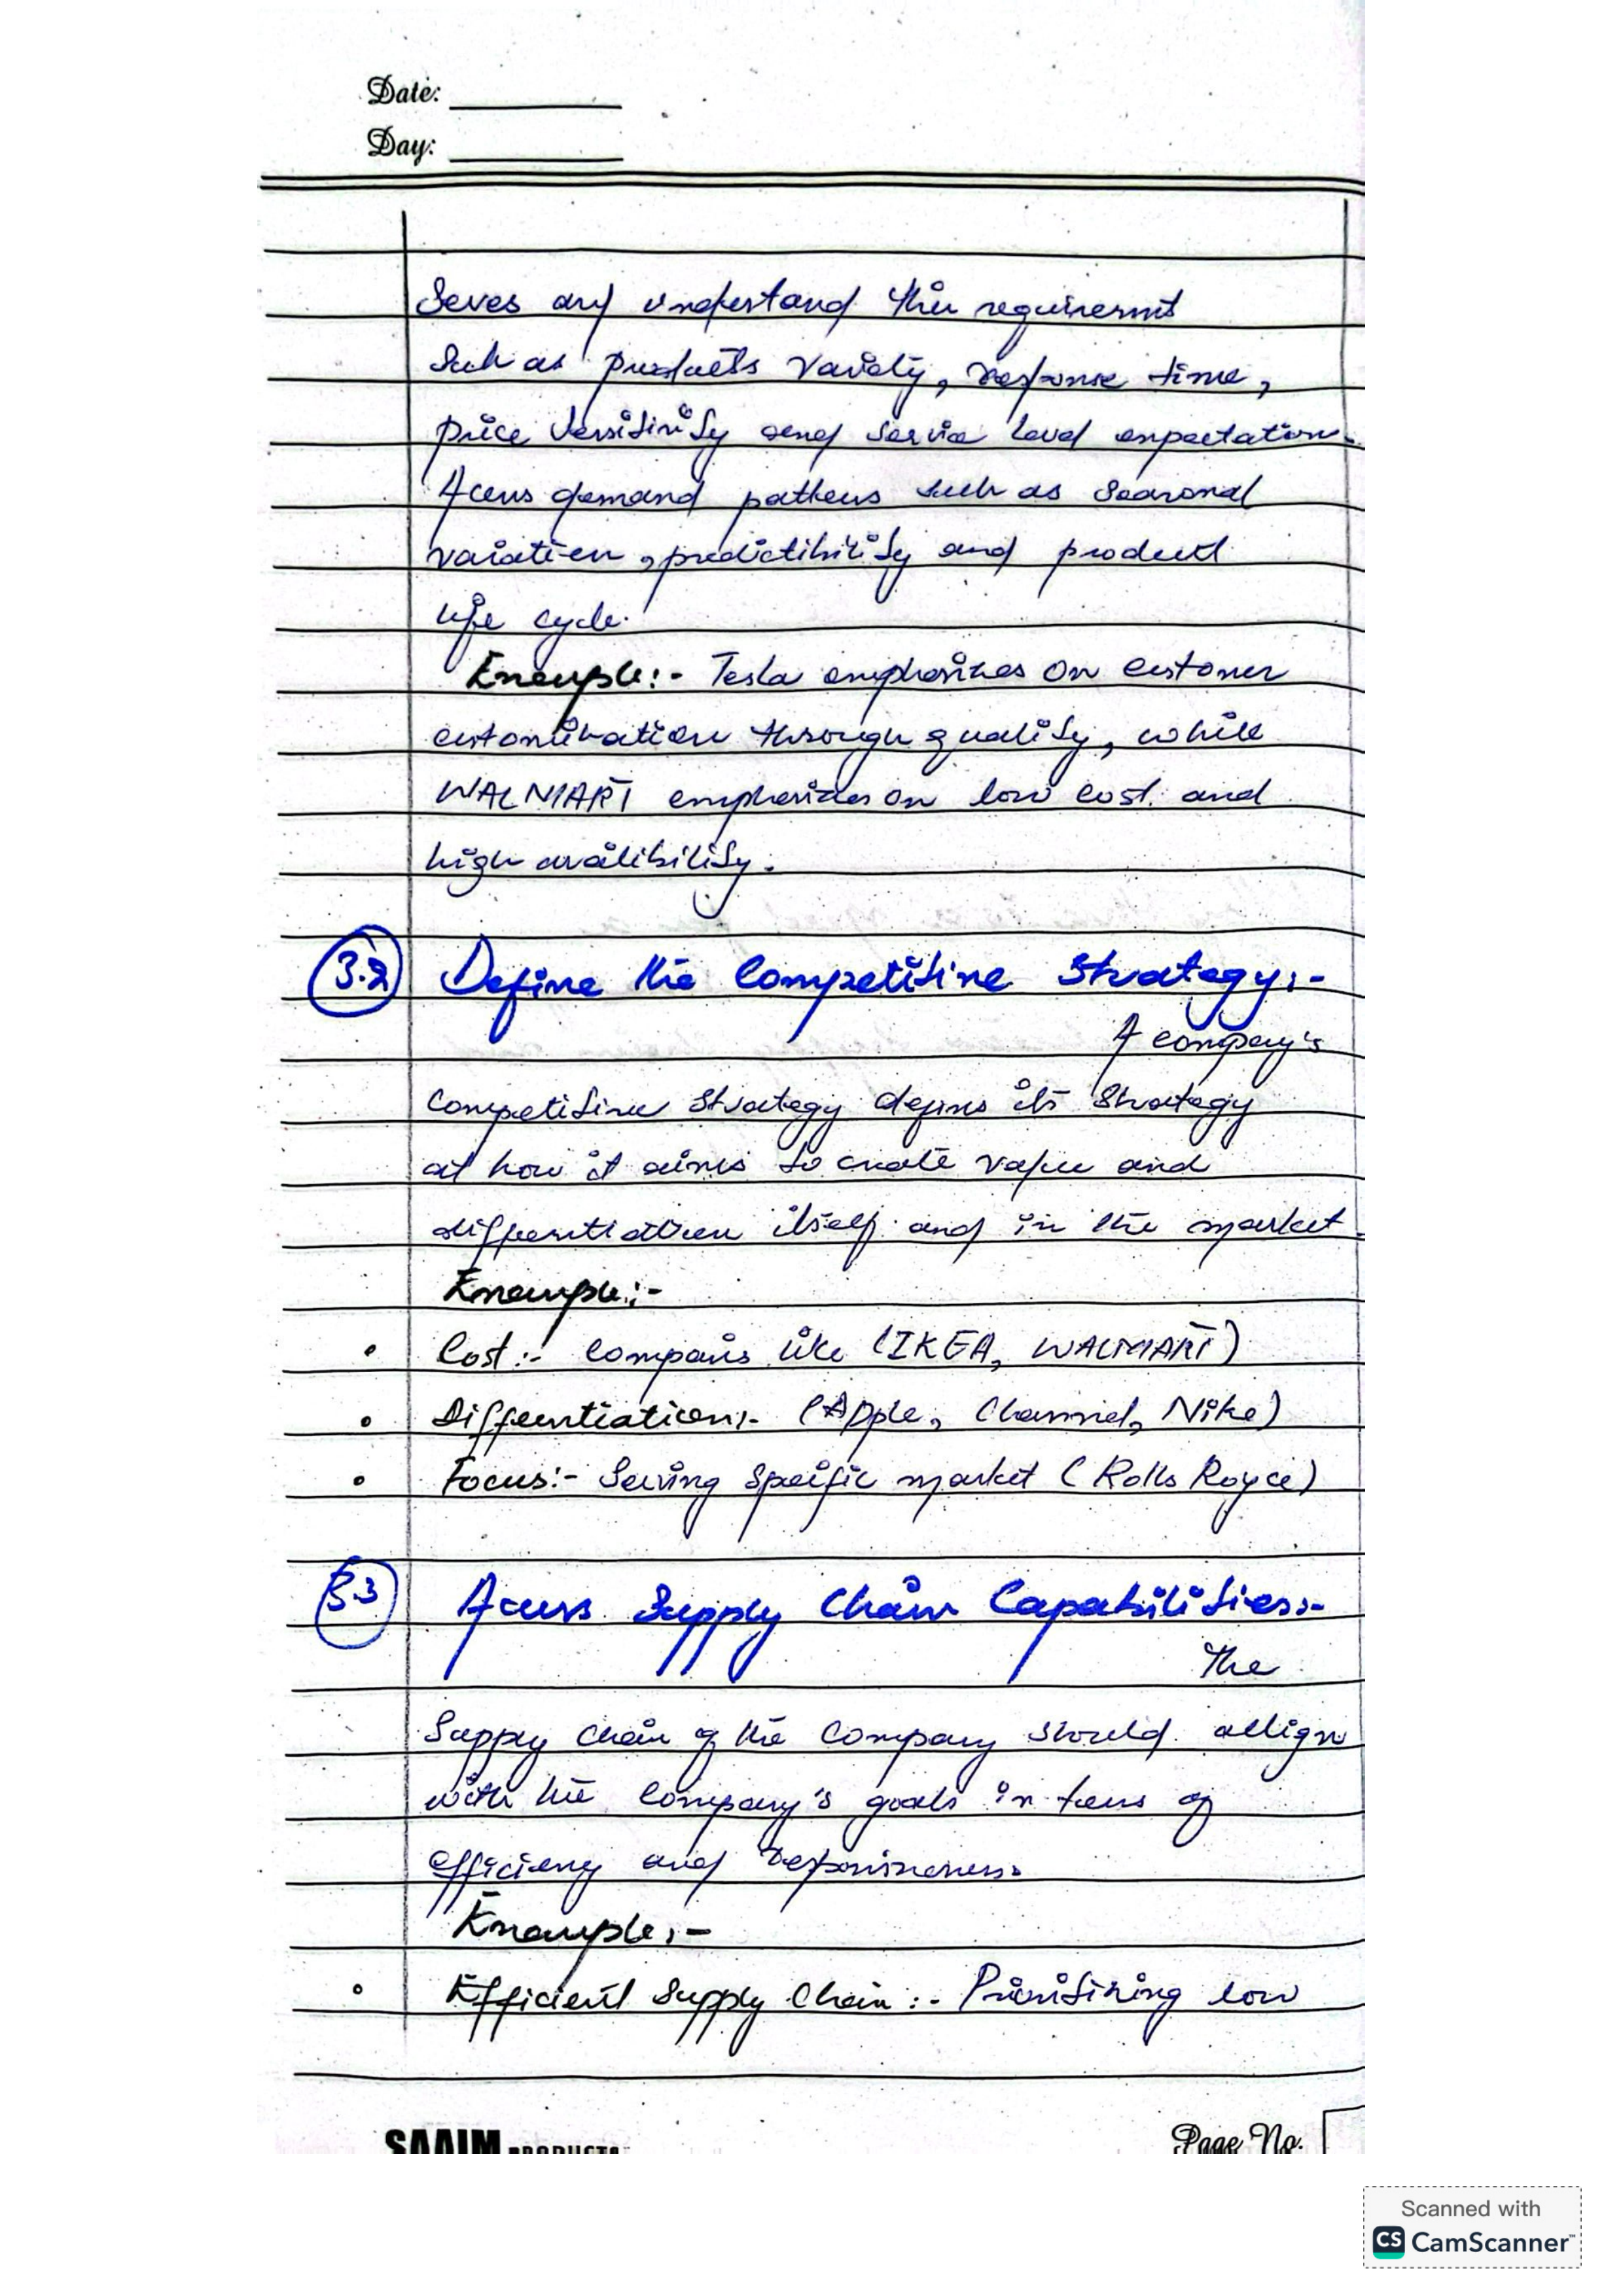 Date:
Day:
Seves and understand their requiremnt
Such as products variety, response time,
price versitivity and service level expectation.
Acess demand patterns such as Seasonal
variation, predictibility and product
life cycle.
Example:- Tesla emphasizes on customer
customization through quality, while
WALMART emphasizes on low cost and
high avalibility.
3.2 Define the Competitive Strategy:-
A company's
competitive strategy defines its strategy
at how it aims to create value and
differentiation itself and in the market.
Example:-
• Cost:- Companis like (IKEA, WALMART)
• Differentiation:- (Apple, Channel, Nike)
• Focus:- Serving Specific market (Rolls Royce)
3.3 Acess Supply Chain Capabilities:-
The
Supply chain of the Company should allign
with the Company's goals in terms of
efficieny and responsiveness.
Example:-
• Efficient Supply Chain:- Prioritizing low
SAAIM PRODUCTS
Page No.
Scanned with
CS CamScanner™